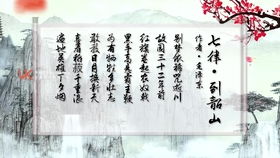 七律·到韶山
作者:毛泽东
别梦依稀咒逝川
故园三十二年前
红旗卷起农奴戟
黑手高悬霸主鞭
为有牺牲多壮志
敢教日月换新天
喜看稻菽千重浪
遍地英雄下夕烟